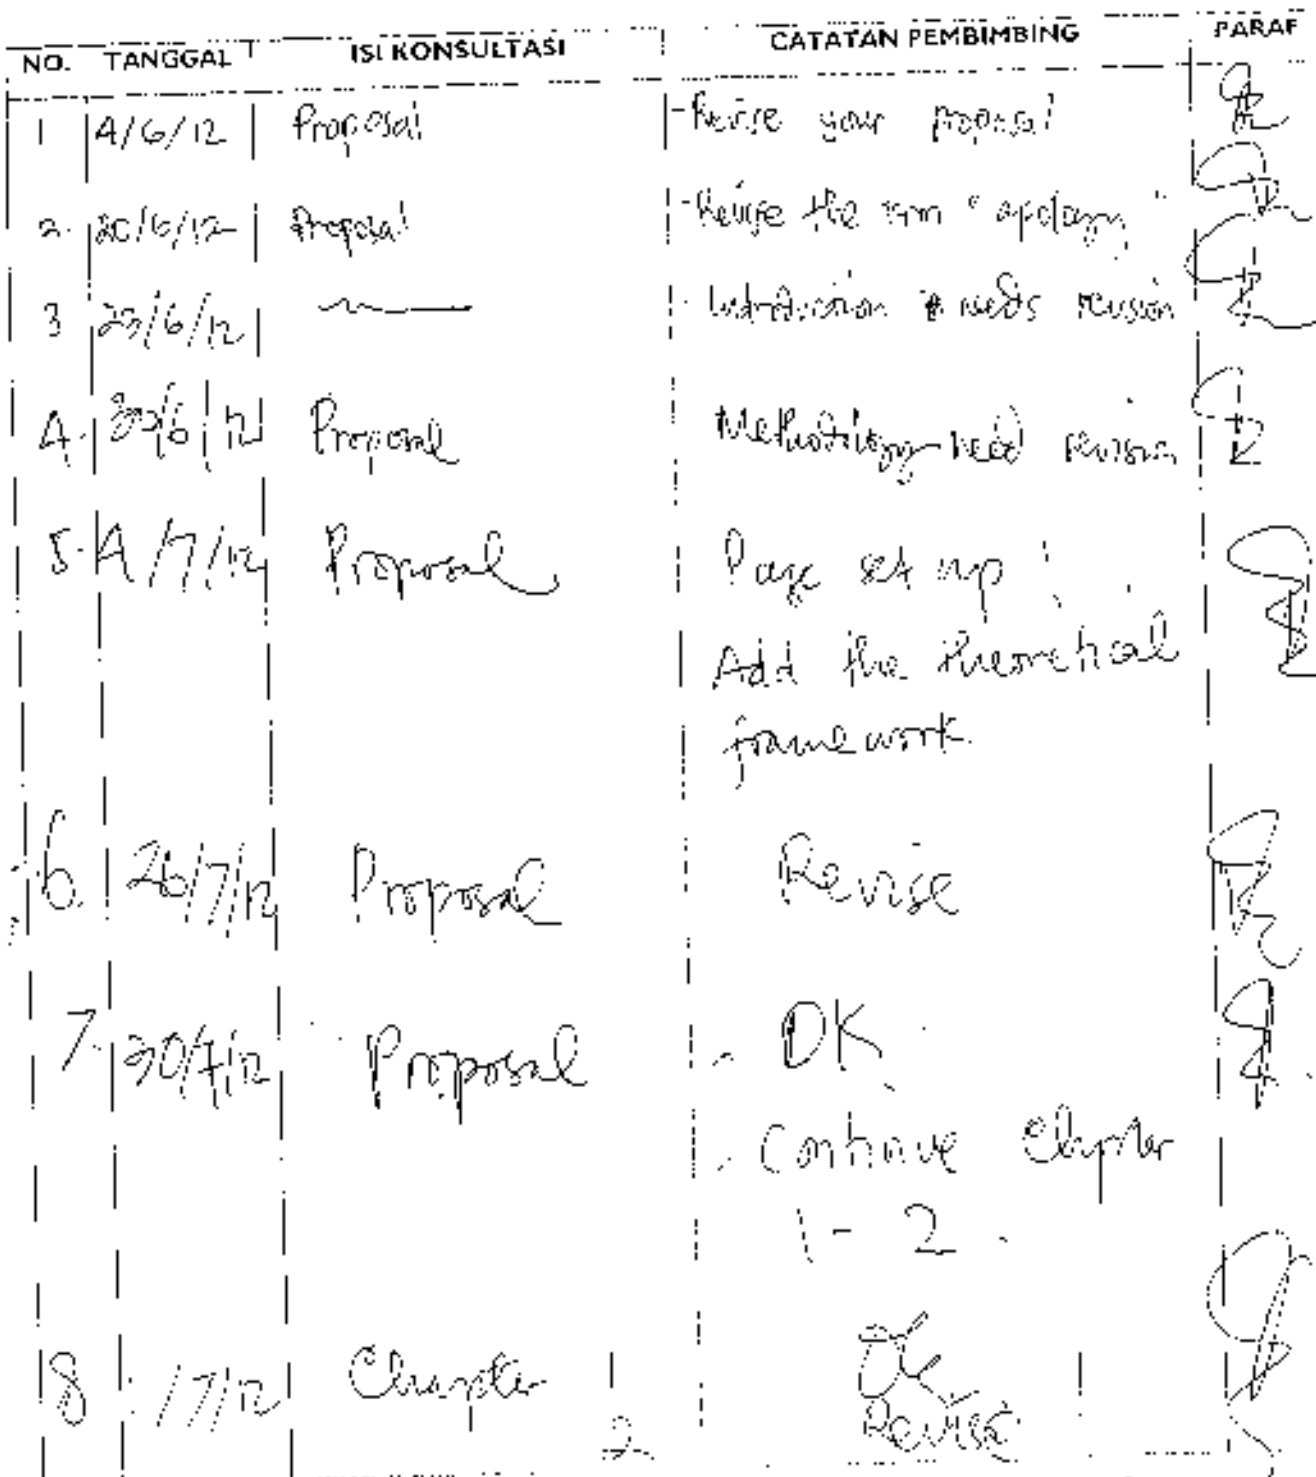 NO. TANGGAL ISI KONSULTASI CATATAN PEMBIMBING PARAF
1 4/6/12 Proposal - Revise your proposal
2. 20/6/12 Proposal - Revise the "apology"
3 25/6/12 - Introduction needs revision
4. 30/6/12 Proposal Methodology need revision
5. 4/7/12 Proposal Page set up!
Add the theoretical
framework.
6. 26/7/12 Proposal Revise
7. 30/7/12 Proposal - OK
- Continue Chapter
1 - 2.
8 /7/12 Chapter 1 Ok
2 Revise